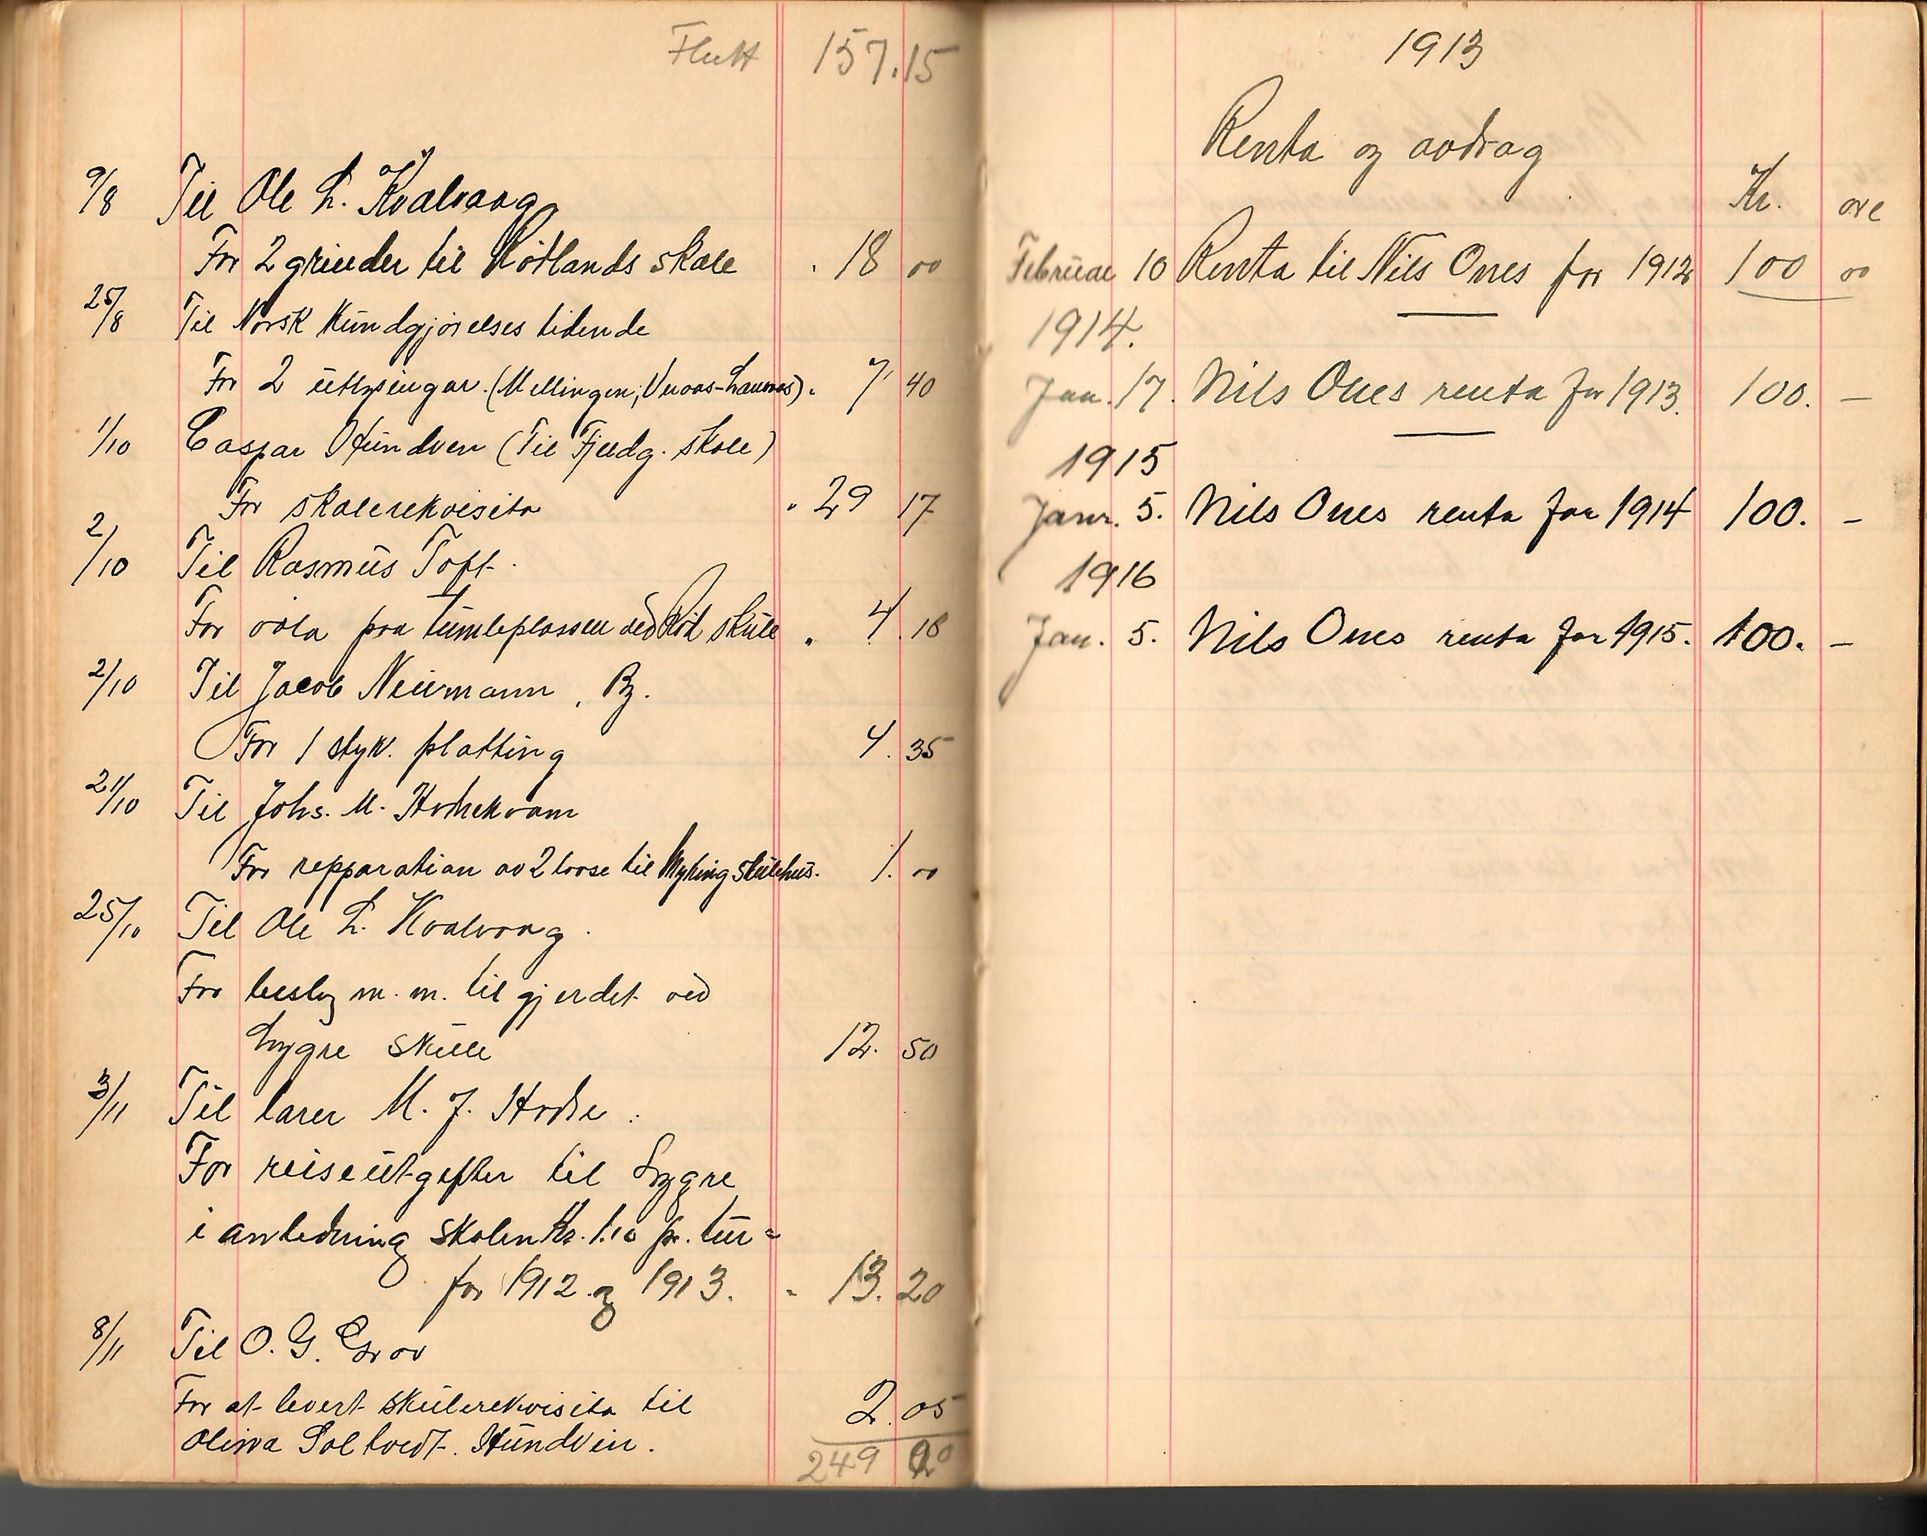 Flutt 157.15
9/8 Til Ole L. Kvalvaag
For 2 grinder til Rötlands skole . 18 00
25/8 Til Norsk Kundgjörelses tidende
For 2 utlysingar. (Mellingen, ) . 7. 40
1/10 Caspar Hundven (Til Fjeldg. skole)
For skolerekvisita . 29 17
2/10 Til Rasmus Toft.
For fra tumleplassen ved skule . 4. 18
2/10 Til Jacob Neumann, By.
For 1 styk. platting 4. 35
21/10 Til Johs. M. Hodnekvam
For repparation av 2 laase til Myking skulehus. 1. 00
25/10 Til Ole L. Kvalvaag.
For beslag m. m. til gjerdet ved
Lygre skule 12. 50
3/11 Til lærer M. J. Hodne.
For reiseutgifter til Lygre
i anledning skolen Kr. 1.10 pr. tur =
for 1912 og 1913. - 13. 20
8/11 Til O. G. Grov
For at levert skulerekvisita til
Oliva Soltvedt. Hundvin. 2. 05
249 00
1913
Renta og avdrag
Kr. øre
Februar 10 Renta til Nils Ones for 1912 100 00
1914.
Jan. 17. Nils Ones renta for 1913. 100. —
1915
Janr. 5. Nils Ones renta for 1914 100. —
1916
Jan. 5. Nils Ones renta for 1915. 100. —